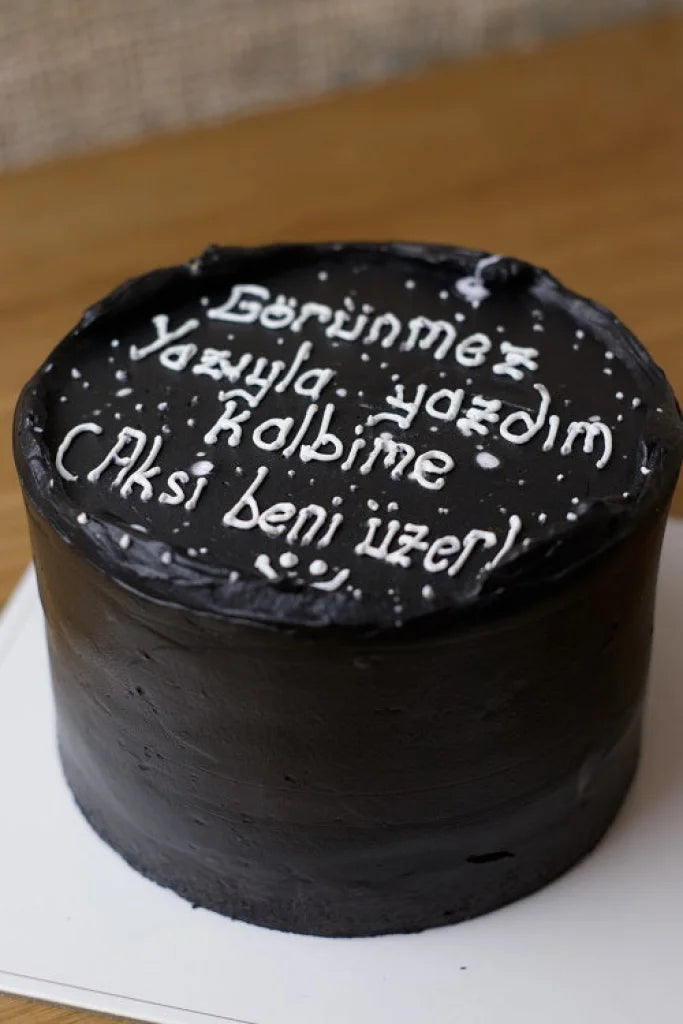 Görünmez
Yazıyla yazdım
kalbime
(Aksi beni üzer)